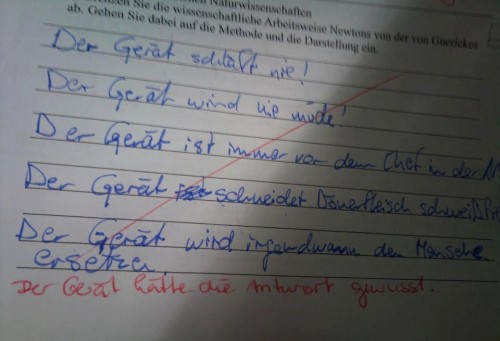 Naturwissenschaften
Sie die wissenschaftliche Arbeitsweise Newtons von der von Guerickes
ab. Gehen Sie dabei auf die Methode und die Darstellung ein.
Der Gerät schläft nie!
Der Gerät wird nie müde!
Der Gerät ist immer vor dem Chef in der
Der Gerät schneidet Dönerfleisch
Der Gerät wird irgendwann den Menschen
ersetzen.
Der Gerät hätte die Antwort gewusst.